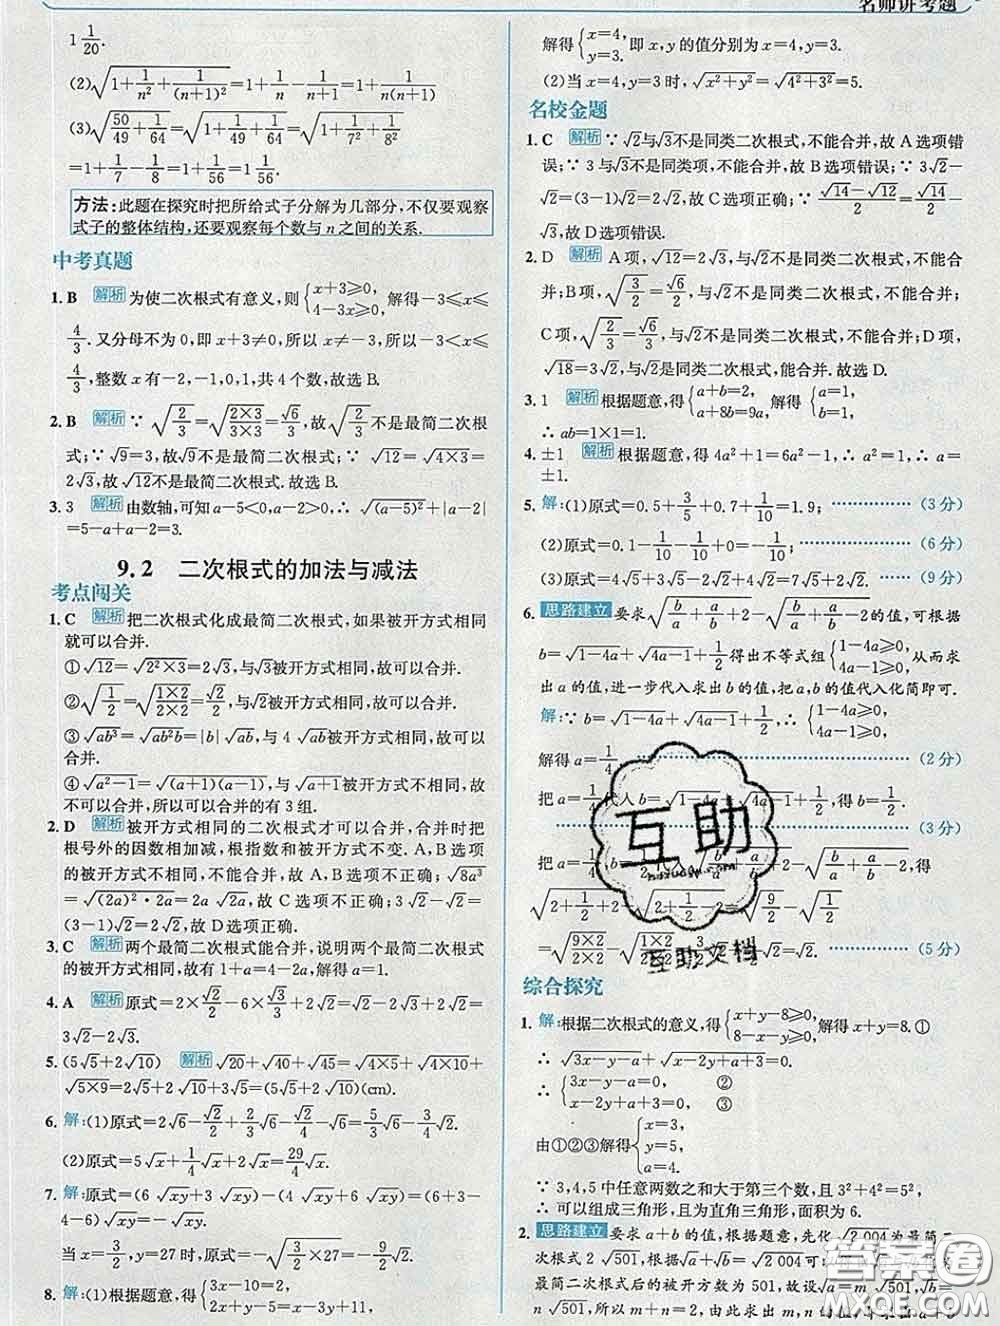 名师讲考题
1 1/20.
(2)√(1+1/n²+1/(n+1)²)=1+1/n-1/(n+1)=1+1/n(n+1)
(3)√(50/49+1/64)=√(1+1/49+1/64)=√(1+1/7²+1/8²)
=1+1/7-1/8=1+1/56=1 1/56.
方法:此题在探究时把所给式子分解为几部分,不仅要观察
式子的整体结构,还要观察每个数与n之间的关系.
中考真题
1. B 解析 为使二次根式有意义,则{x+3≥0, 4-3x≥0, 解得-3≤x≤
4/3.又分母不为0,即x+3≠0,所以x≠-3,所以-3<x≤
4/3,整数x有-2,-1,0,1,共4个数,故选B.
2. B 解析 ∵√(2/3)=√((2×3)/(3×3))=√6/3,故√(2/3)不是最简二次根
式;∵√9=3,故√9不是最简二次根式.∵√12=√(4×3)=
2√3,故√12不是最简二次根式.故选B.
3. 3 解析 由数轴,可知a-5<0,a-2>0,∴√(a-5)²+|a-2|
=5-a+a-2=3.
9.2 二次根式的加法与减法
考点闯关
1. C 解析 把二次根式化成最简二次根式,如果被开方式相同
就可以合并.
①√12=√(2²×3)=2√3,与√3被开方式相同,故可以合并.
②√(1/2)=√((1×2)/(2×2))=√2/2,与√2被开方式相同,故可以合并.
③√ab³=√(ab²b)=|b|√ab,与4√ab被开方式相同,故可以
合并.
④√(a²-1)=√((a+1)(a-1)),与√(a+1)被开方式不相同,故
不可以合并,所以可以合并的有3组.
2. D 解析 被开方式相同的二次根式才可以合并,合并时把
根号外的因数相加减,根指数和被开方式不变.A,B选项
的被开方式不相同,不能合并,故A,B选项不正确;√8a³
=√(2a)²·2a=2a√2a,故C选项不正确;3√2-√2=
(3-1)√2=2√2,故D选项正确.
3. C 解析 两个最简二次根式能合并,说明两个最简二次根式
的被开方式相同,故有1+a=4-2a,解得a=1.
4. A 解析 原式=2×√2/2-6×√3/3+2√2=√2-2√3+2√2=
3√2-2√3.
5. (5√5+2√10) 解析 √20+√40+√45=√(4×5)+√(4×10)+
√(5×9)=2√5+2√10+3√5=(5√5+2√10)(cm).
6. 解:(1)原式=2√6-√2/2+√2/3-√6/3+√2/4=5/3√6+3/4√2.
(2)原式=5√x+1/4√x+2√x=29/4√x.
7. 解:原式=(6√xy+3√xy)-(4√xy+6√xy)=(6+3-
4-6)√xy=-√xy.
当x=3/2,y=27时,原式=-√(3/2×27)=-9/2√2.
8. 解:(1)根据题意,得{3x-10=2, 2x+y-5=x-3y+11,
解得{x=4, y=3. 即x,y的值分别为x=4,y=3.
(2)当x=4,y=3时,√(x²+y²)=√(4²+3²)=5.
名校金题
1. C 解析 ∵√2与√3不是同类二次根式,不能合并,故A选项错
误;∵3与√3不是同类项,不能合并,故B选项错误;∵3√2-
√2=(3-1)√2=2√2,故C选项正确;∵(√14-√12)/√2=√14/√2-
√3,故D选项错误.
2. D 解析 A项,√12=2√3,与√2不是同类二次根式,不能合
并;B项,√(3/2)=√6/2,与√2不是同类二次根式,不能合并;
C项,√(2/3)=√6/3,与√2不是同类二次根式,不能合并;D项,
√18=3√2,与√2是同类二次根式,能合并.故选D.
3. 1 解析 根据题意,得{a+b=2, a+8b=9a, 解得{a=1, b=1.
∴ab=1×1=1.
4. ±1 解析 根据题意,得4a²+1=6a²-1,∴a²=1,∴a=
±1.
5. 解:(1)原式=0.5+3/5+0.7+1/10=1.9; (3分)
(2)原式=0.1-11/10-1/10+0=-11/10; (6分)
(3)原式=4√5+3√5-2√2+4√2=7√5+2√2. (9分)
6. 思路建立 要求√(b/a+a/b+2)-√(b/a+a/b-2)的值,可根据
b=√(1-4a)+√(4a-1)+1/2得出不等式组{1-4a≥0, 4a-1≥0, 从而求
出a的值,进一步代入求出b的值,把a,b的值代入化简即可.
解:∵b=√(1-4a)+√(4a-1)+1/2,∴{1-4a≥0, 4a-1≥0.
解得a=1/4. (2分)
把a=1/4代入b=√(1-4a)+√(4a-1)+1/2,得b=1/2.
(3分)
√(b/a+a/b-2),得
√(2+1/2+2)-√(2+1/2-2)=√(9/2)-√(1/2)
=√((9×2)/(2×2))-√((1×2)/(2×2))=3/2√2-1/2√2=√2. (5分)
综合探究
1. 解:根据二次根式的意义,得{x+y-8≥0, 8-x-y≥0, 解得x+y=8,①
∴√(3x-y-a)+√(x-2y+a+3)=0.
∴{3x-y-a=0, ② x-2y+a+3=0. ③
由①②③解得{x=3, y=5, a=4.
∵3,4,5中任意两数之和大于第三个数,且3²+4²=5²,
∴可以组成三角形,且为直角三角形,面积为6.
2. 思路建立 要求a+b的值,首先化√2 004为最简二
次根式2√501,根据√a+√b=√2 004
最简二次根式后的被开方数为501,故设√a=m√501,√b=
n√501,所以m+n=2,由此求出m,n的值
互助
互助文档
答案圈
MXQE.COM